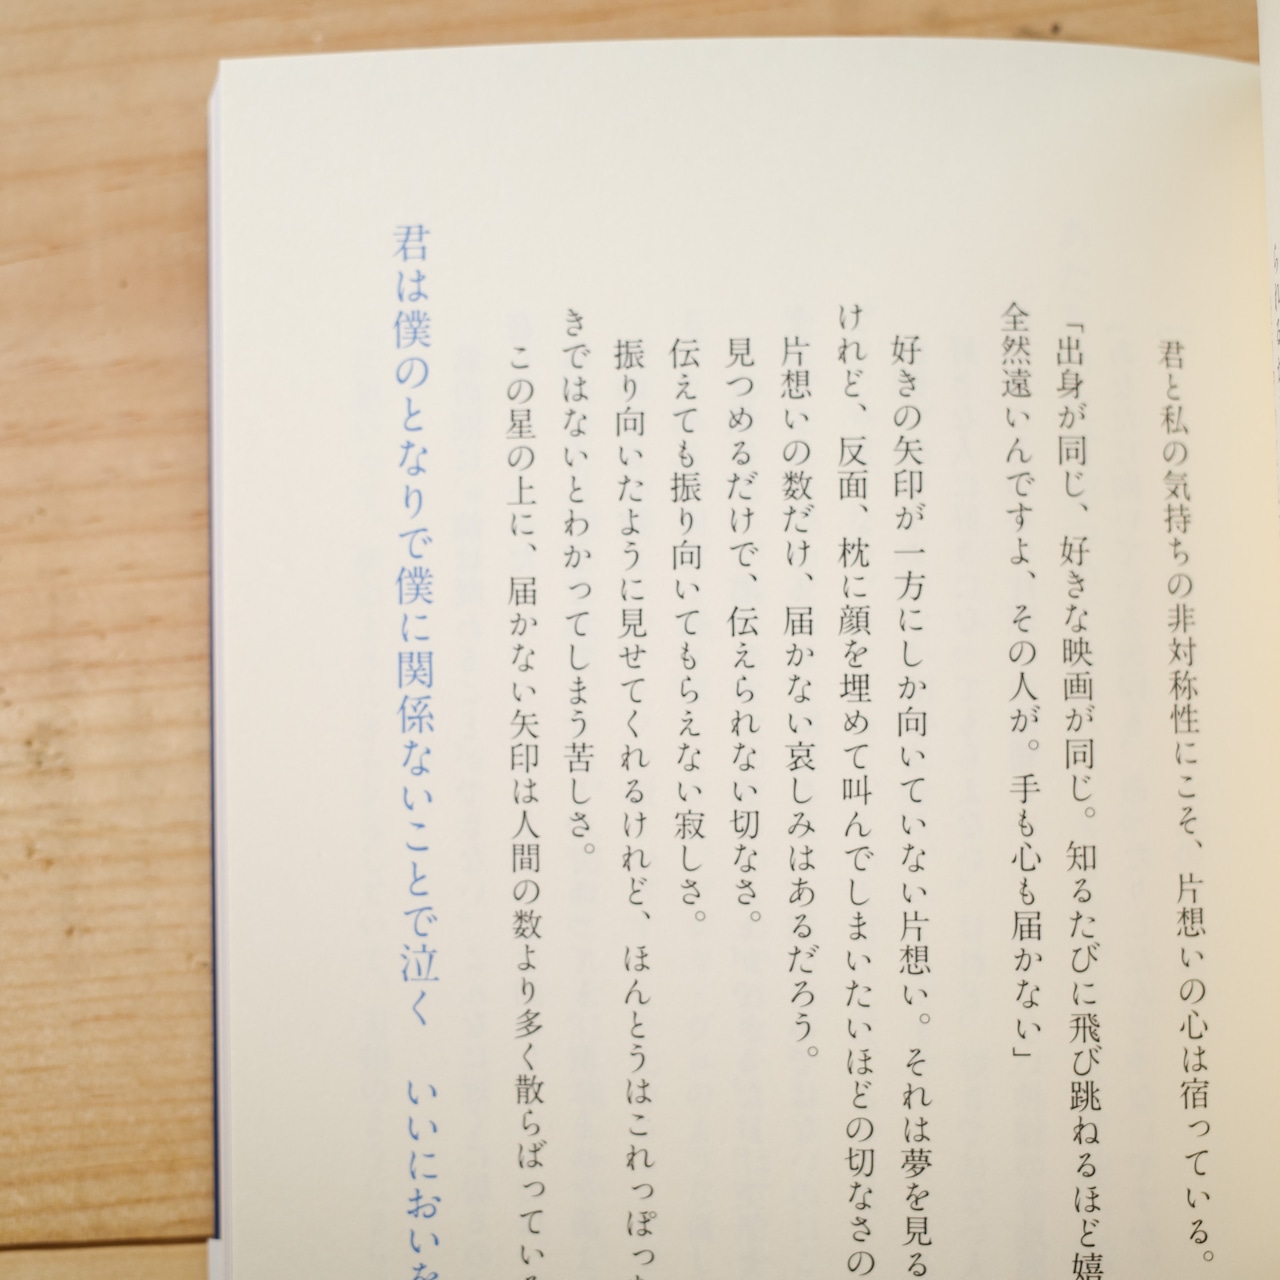 君と私の気持ちの非対称性にこそ、片想いの心は宿っている。
「出身が同じ、好きな映画が同じ。知るたびに飛び跳ねるほど嬉
全然遠いんですよ、その人が。手も心も届かない」
好きの矢印が一方にしか向いていない片想い。それは夢を見る
けれど、反面、枕に顔を埋めて叫んでしまいたいほどの切なさの
片想いの数だけ、届かない哀しみはあるだろう。
見つめるだけで、伝えられない切なさ。
伝えても振り向いてもらえない寂しさ。
振り向いたように見せてくれるけれど、ほんとうはこれっぽっ
きではないとわかってしまう苦しさ。
この星の上に、届かない矢印は人間の数より多く散らばってい
君は僕のとなりで僕に関係ないことで泣く　いいにおいを